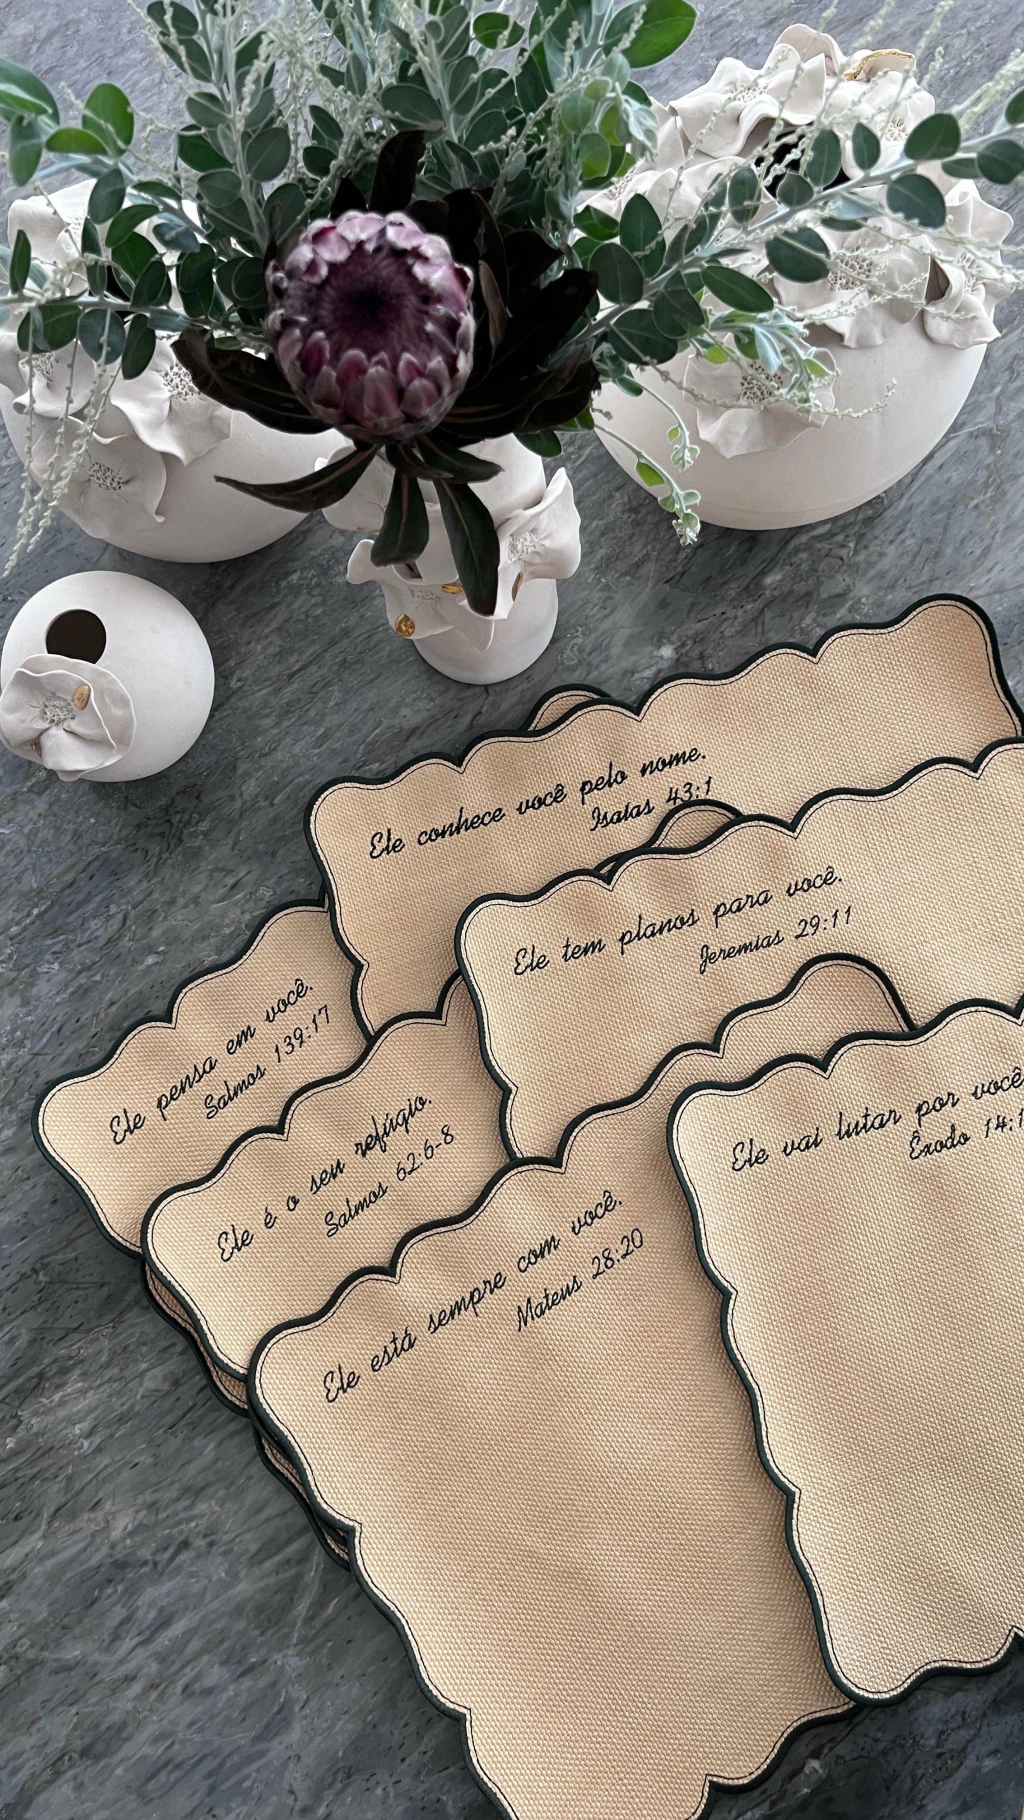 Ele conhece você pelo nome.
Isaías 43:1
Ele tem planos para você.
Jeremias 29:11
Ele pensa em você.
Salmos 139:17
Ele é o seu refúgio.
Salmos 62:6-8
Ele vai lutar por você
Êxodo 14:1
Ele está sempre com você.
Mateus 28:20